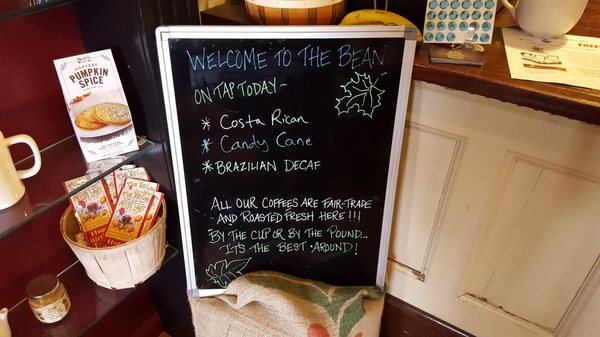 WELCOME TO THE BEAN
ON TAP TODAY~
* Costa Rican
* Candy Cane
* BRAZILIAN DECAF
ALL OUR COFFEES ARE FAIR-TRADE
AND ROASTED FRESH HERE!!!
BY THE CUP OR BY THE POUND...
IT'S THE BEST AROUND!
HARVEST
PUMPKIN
SPICE
FREE